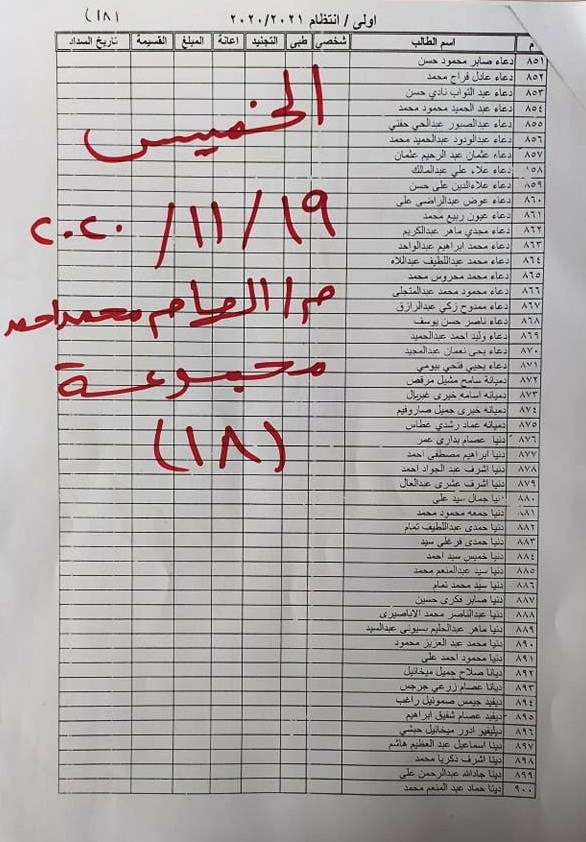 (١٨)
اولى / انتظام ٢٠٢٠/٢٠٢١
م اسم الطالب شخصي طبى التجنيد اعانة المبلغ القسيمة تاريخ السداد
٨٥١ دعاء صابر محمود حسن
٨٥٢ دعاء عادل فراج محمد
٨٥٣ دعاء عبد التواب نادي حسن
٨٥٤ دعاء عبد الحميد محمود محمد
٨٥٥ دعاء عبدالصبور عبدالحي حفني
٨٥٦ دعاء عبدالودود عبدالحميد محمد
٨٥٧ دعاء عثمان عبد الرحيم عثمان
٨٥٨ دعاء علاء علي عبدالمالك
٨٥٩ دعاء علاءالدين على حسن
٨٦٠ دعاء عوض عبدالراضى على
٨٦١ دعاء عيون ربيع محمد
٨٦٢ دعاء مجدي ماهر عبدالكريم
٨٦٣ دعاء محمد ابراهيم عبدالواحد
٨٦٤ دعاء محمد عبداللطيف عبداللاه
٨٦٥ دعاء محمد محروس محمد
٨٦٦ دعاء محمود محمد عبدالمتجلى
٨٦٧ دعاء ممدوح زكي عبدالرازق
٨٦٨ دعاء ناصر حسن يوسف
٨٦٩ دعاء وليد احمد عبدالحميد
٨٧٠ دعاء يحى نعمان عبدالمجيد
٨٧١ دعاء يحيي فتحي بيومي
٨٧٢ دميانة سامح مشيل مرقص
٨٧٣ دميانه اسامه خيرى غبريال
٨٧٤ دميانه خيرى جميل صاروفيم
٨٧٥ دميانه عماد رشدي غطاس
٨٧٦ دنيا عصام بدارى عمر
٨٧٧ دنيا ابراهيم مصطفى احمد
٨٧٨ دنيا اشرف عبد الجواد احمد
٨٧٩ دنيا اشرف عشرى عبدالعال
٨٨٠ دنيا جمال سيد على
٨٨١ دنيا جمعه محمود محمد
٨٨٢ دنيا حمدى عبداللطيف تمام
٨٨٣ دنيا حمدى فرغلى سيد
٨٨٤ دنيا خميس سيد احمد
٨٨٥ دنيا سيد عبدالمنعم محمد
٨٨٦ دنيا سيد محمد تمام
٨٨٧ دنيا صابر فكرى حسين
٨٨٨ دنيا عبدالناصر محمد الاباصيرى
٨٨٩ دنيا ماهر عبدالحليم بسيونى عبدالسيد
٨٩٠ دنيا محمد عبد العزيز محمود
٨٩١ دنيا محمود احمد على
٨٩٢ ديانا صلاح جميل ميخائيل
٨٩٣ ديانا عصام زرعي جرجس
٨٩٤ ديفيد جيمس صموئيل راغب
٨٩٥ ديفيد عصام شفيق ابراهيم
٨٩٦ ديليفيو ادور ميخائيل حبشي
٨٩٧ دينا اسماعيل عبد العظيم هاشم
٨٩٨ دينا اشرف ذكريا محمد
٨٩٩ دينا جادالله عبدالرحمن على
٩٠٠ دينا حماد عبد المنعم محمد
الخميس
١٩ / ١١ / ٢٠٢٠
م / الهام محمد احمد
مجموعة
(١٨)